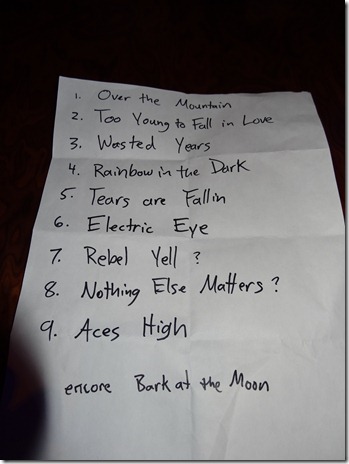 1. Over the Mountain
2. Too Young to Fall in Love
3. Wasted Years
4. Rainbow in the Dark
5. Tears are Fallin
6. Electric Eye
7. Rebel Yell ?
8. Nothing Else Matters ?
9. Aces High
encore Bark at the Moon